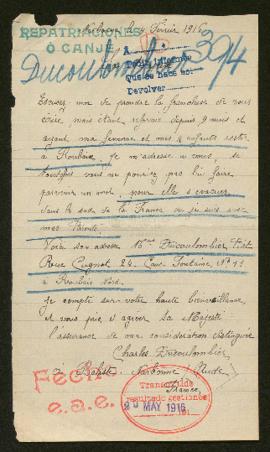 Narbonne le 4 Février 1916
REPATRIACIONES
Ó CANJE
Ducoulombier 394
A
Pedir informe
Que se hace así
Devolver
Excusez moi de prendre la franchise de vous
écrire, mais étant réformé depuis 9 mois et
ayant ma femme et mes 4 enfants restés
à Roubaix je m'adresse à vous, si
vous ne pourriez pas lui faire
parvenir un mot pour elle s'évacuer
dans le sud de la France ou je suis avec
mes Parents.
Voici son adresse Mme Ducoulombier
Rue Cugnot 24 Cour Fontaine Nº 13
à Roubaix Nord.
Je compte sur votre haute bienveillance,
et vous prie d'agréer Sa Majesté
l'assurance de ma considération distinguée
Charles Ducoulombier
à Narbonne Aude
France
Fecit
e.a.e.
Transmitido
resultado gestiones
20 MAY 1916